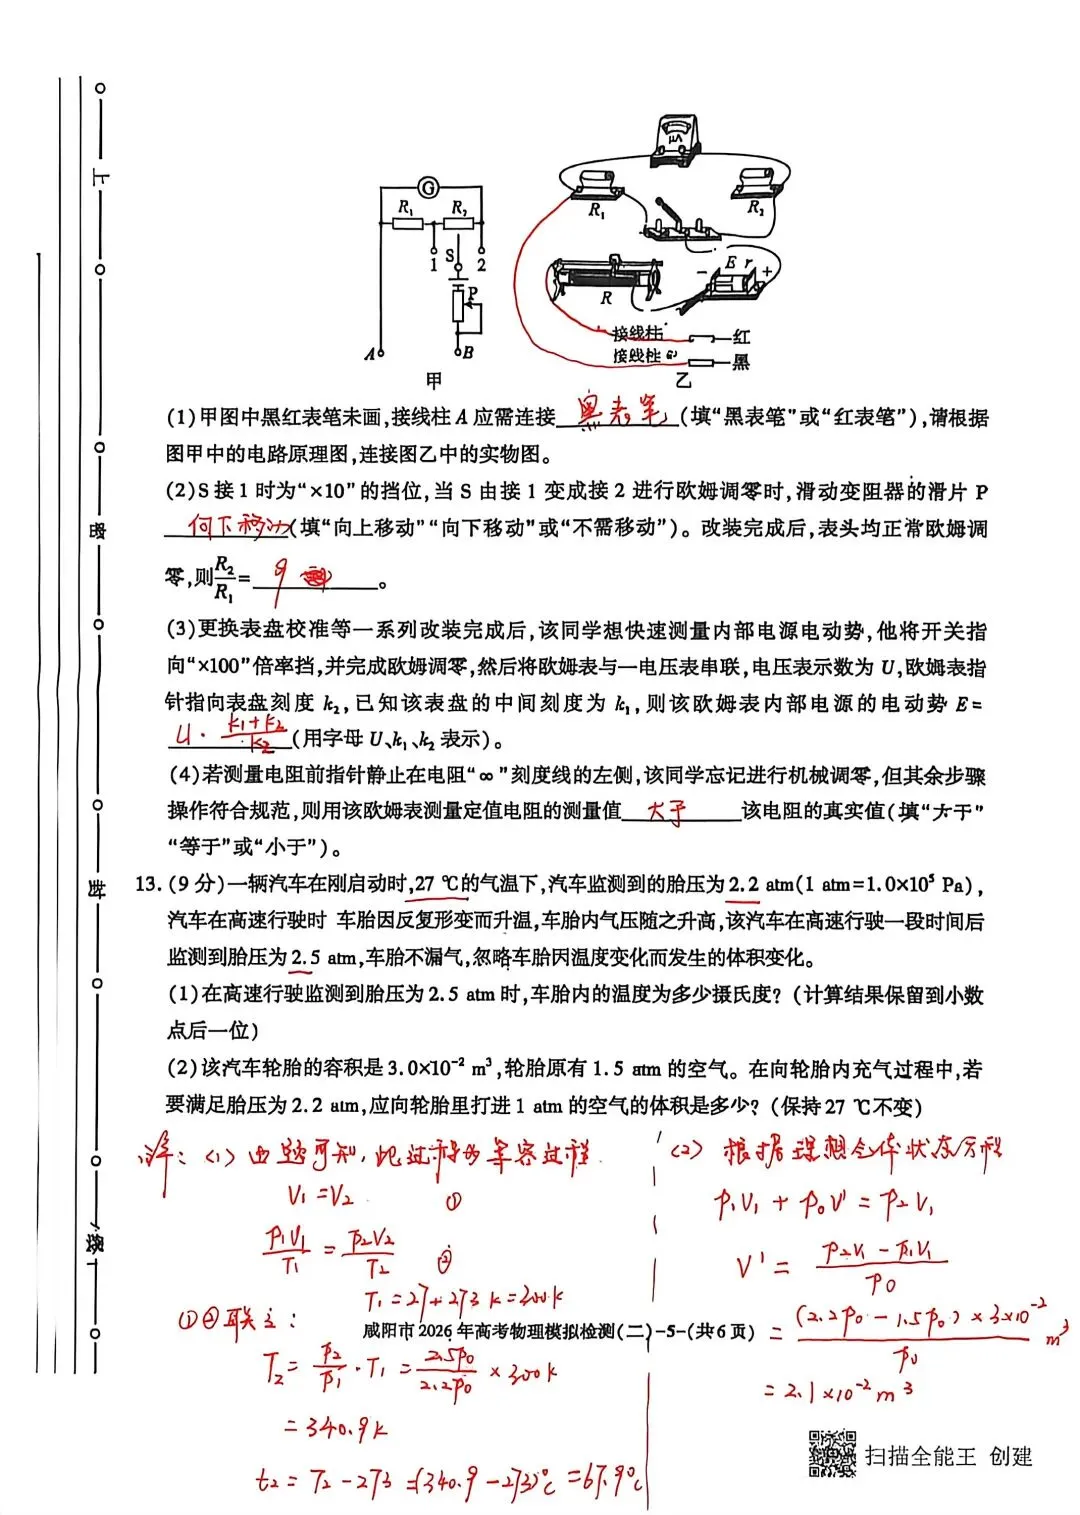 上
密
封
线
G
R₁ R₂
1 S 2
P
A B
甲
μA
R₁ R₂
E r
- +
R
接线柱 红
接线柱 黑
乙
(1)甲图中黑红表笔未画,接线柱 A 应需连接 黑表笔 (填“黑表笔”或“红表笔”),请根据
图甲中的电路原理图,连接图乙中的实物图。
(2)S接1时为“×10”的挡位,当 S 由接 1 变成接 2 进行欧姆调零时,滑动变阻器的滑片 P
向下移动(填“向上移动”“向下移动”或“不需移动”)。改装完成后,表头均正常欧姆调
零,则R₂/R₁= 9 。
(3)更换表盘校准等一系列改装完成后,该同学想快速测量内部电源电动势,他将开关指
向“×100”倍率挡,并完成欧姆调零,然后将欧姆表与一电压表串联,电压表示数为 U,欧姆表指
针指向表盘刻度 k₂,已知该表盘的中间刻度为 k₁,则该欧姆表内部电源的电动势 E=
U·(k₁+k₂)/k₂ (用字母 U、k₁、k₂ 表示)。
(4)若测量电阻前指针静止在电阻“∞”刻度线的左侧,该同学忘记进行机械调零,但其余步骤
操作符合规范,则用该欧姆表测量定值电阻的测量值 大于 该电阻的真实值(填“大于”
“等于”或“小于”)。
13.(9 分)一辆汽车在刚启动时,27 ℃的气温下,汽车监测到的胎压为2.2 atm(1 atm=1.0×10⁵ Pa),
汽车在高速行驶时 车胎因反复形变而升温,车胎内气压随之升高,该汽车在高速行驶一段时间后
监测到胎压为2.5 atm,车胎不漏气,忽略车胎因温度变化而发生的体积变化。
(1)在高速行驶监测到胎压为2.5 atm时,车胎内的温度为多少摄氏度?(计算结果保留到小数
点后一位)
(2)该汽车轮胎的容积是3.0×10⁻² m³,轮胎原有1.5 atm 的空气。在向轮胎内充气过程中,若
要满足胎压为2.2 atm,应向轮胎里打进1 atm 的空气的体积是多少?(保持27 ℃不变)
解:(1)由题可知,此过程为等容过程
V₁=V₂ ①
p₁V₁/T₁ = p₂V₂/T₂ ②
T₁=27+273 K=300K
①②联立:
T₂= p₂/p₁·T₁ = 2.5p₀/2.2p₀ ×300K
=340.9K
t₂=T₂-273=(340.9-273)℃=67.9℃
(2)根据理想气体状态方程
p₁V₁+p₀V'=p₂V₁
V'= (p₂V₁-p₁V₁)/p₀
= (2.2p₀-1.5p₀)×3×10⁻²/p₀ m³
=2.1×10⁻²m³
咸阳市2026年高考物理模拟检测(二)-5-(共6页)
扫描全能王 创建